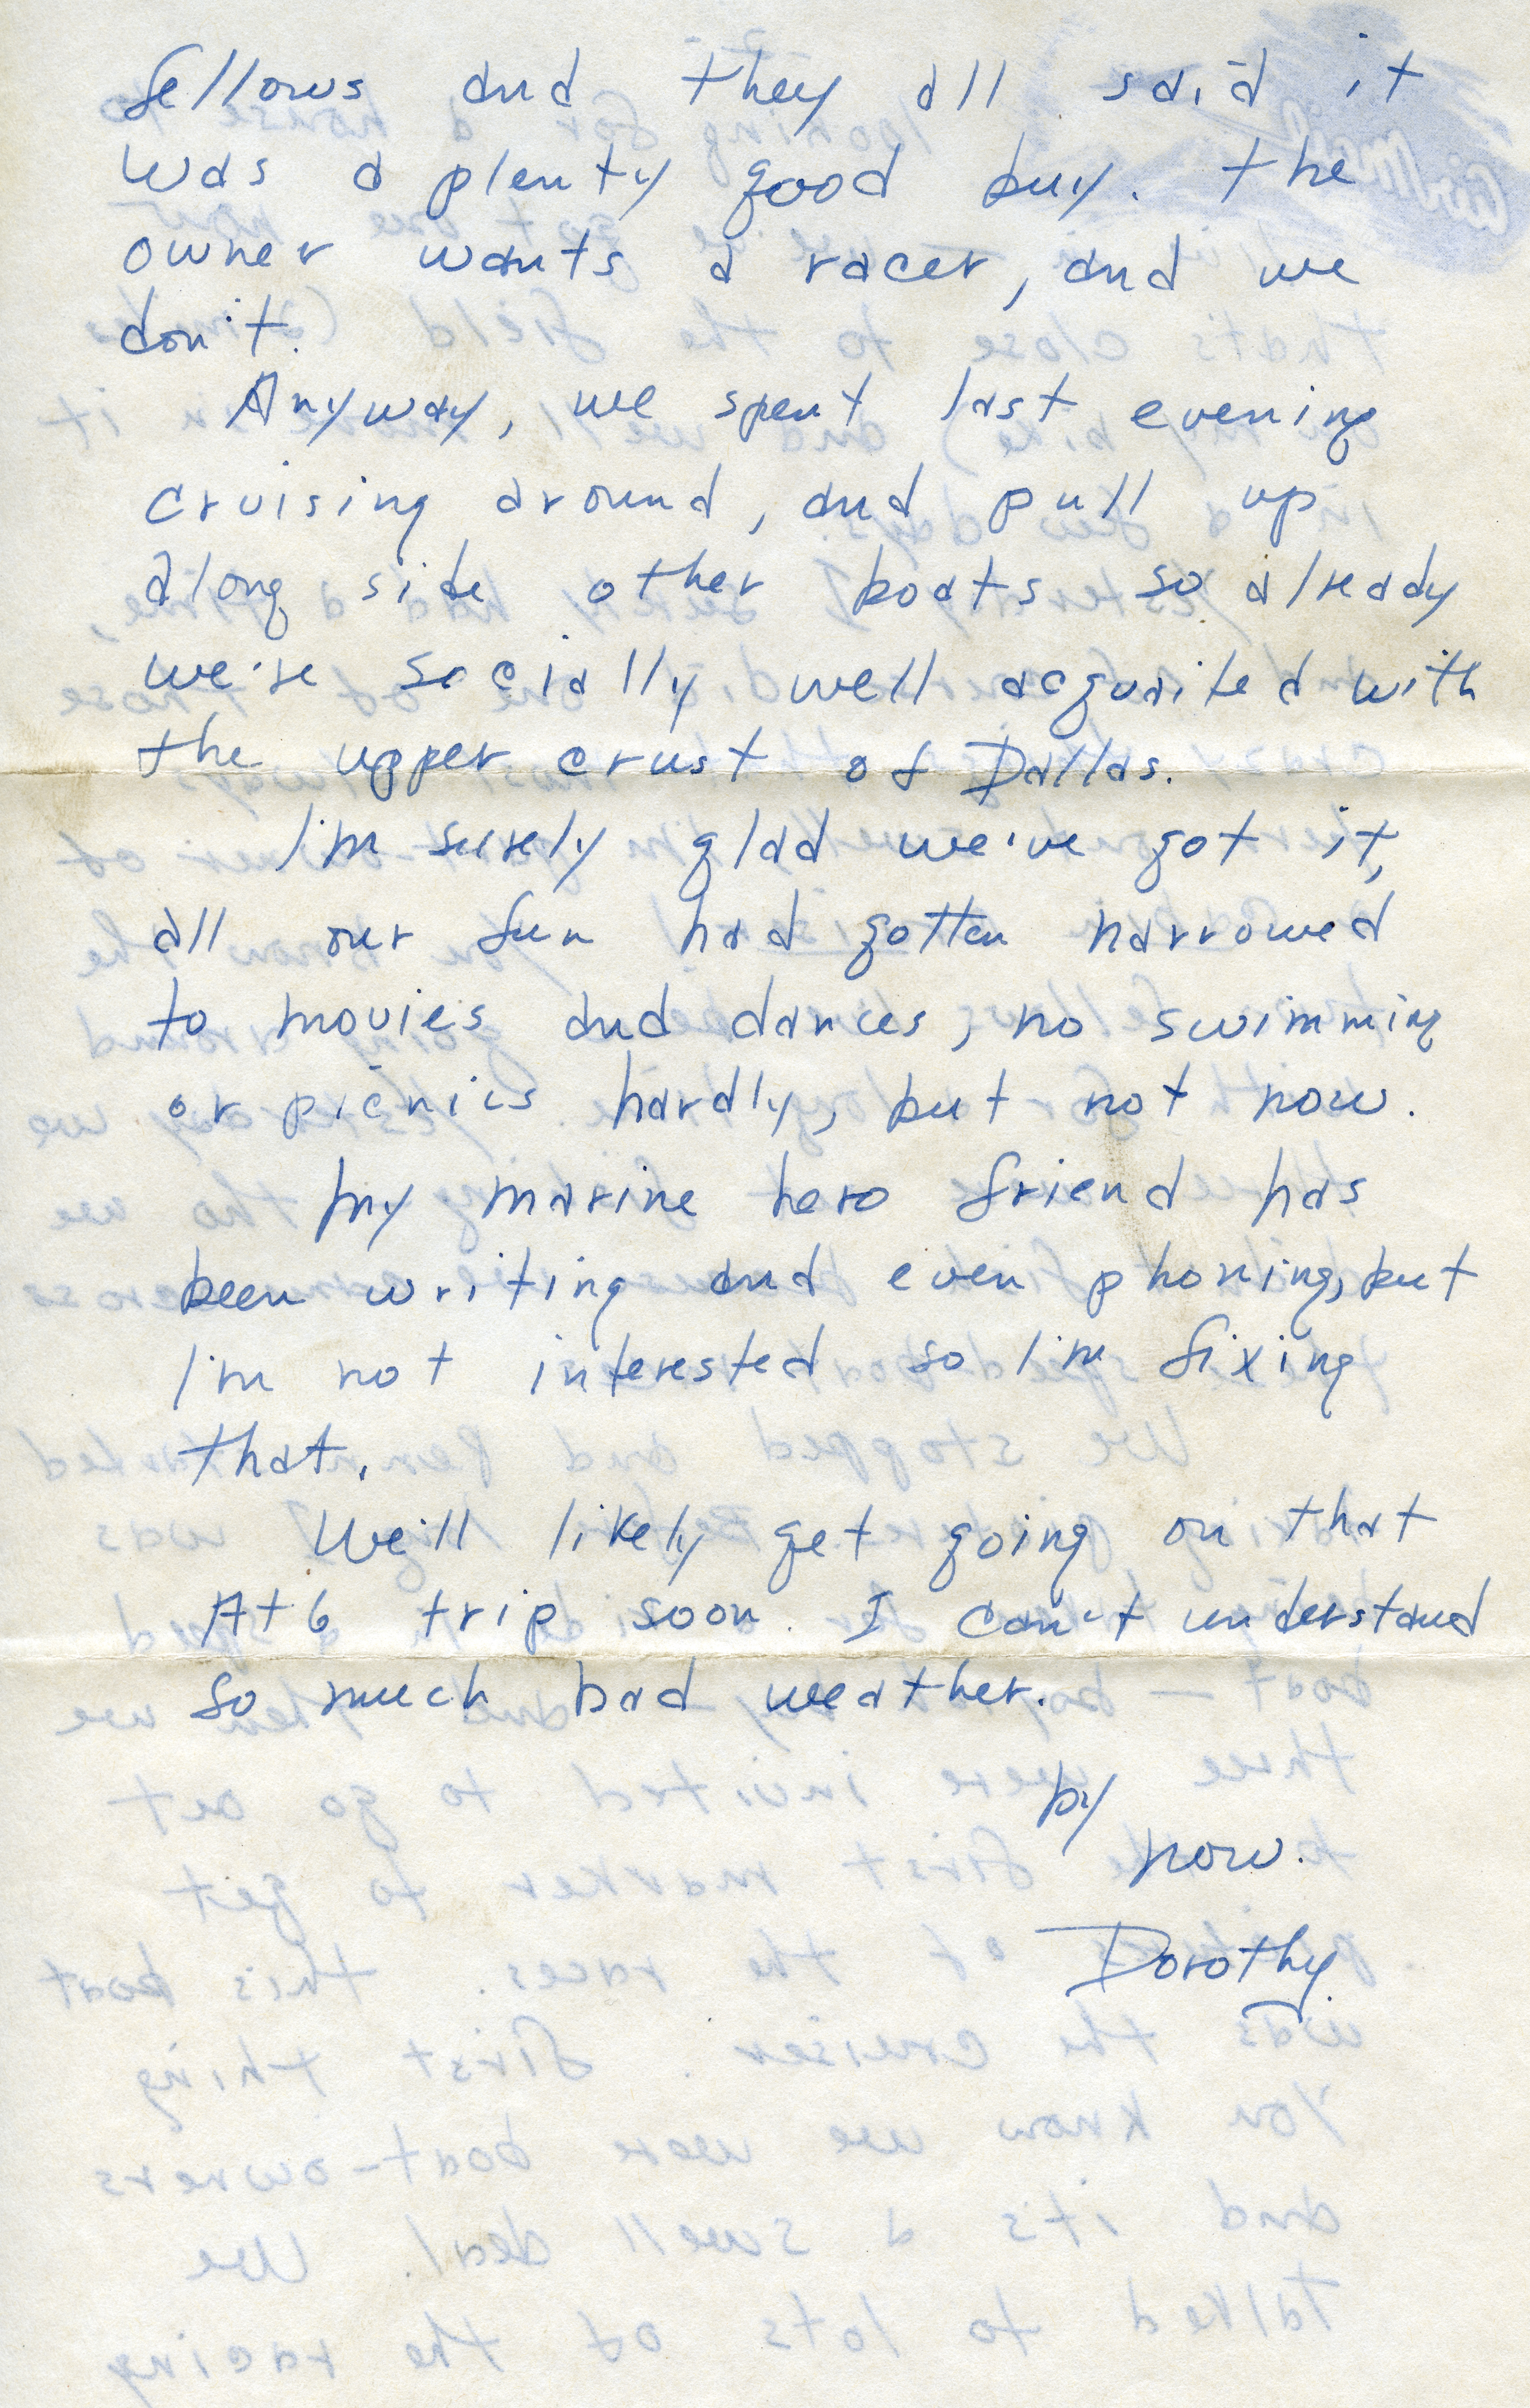 fellows and they all said it
was a plenty good buy. the
owner wants a racer, and we
don't.
Anyway, we spent last evening
cruising around, and pull up
along side other boats so already
we're socially well acquaited with
the upper crust of Dallas.
I'm surely glad we've got it,
all our fun had gotten narrowed
to movies and dances, no swimming
or picnics hardly, but not now.
My marine hero friend has
been writing and even phoning, but
I'm not interested so I'm fixing
that.
We'll likely get going on that
At 6 trip soon. I can't understand
so much bad weather.
by
now.
Dorothy